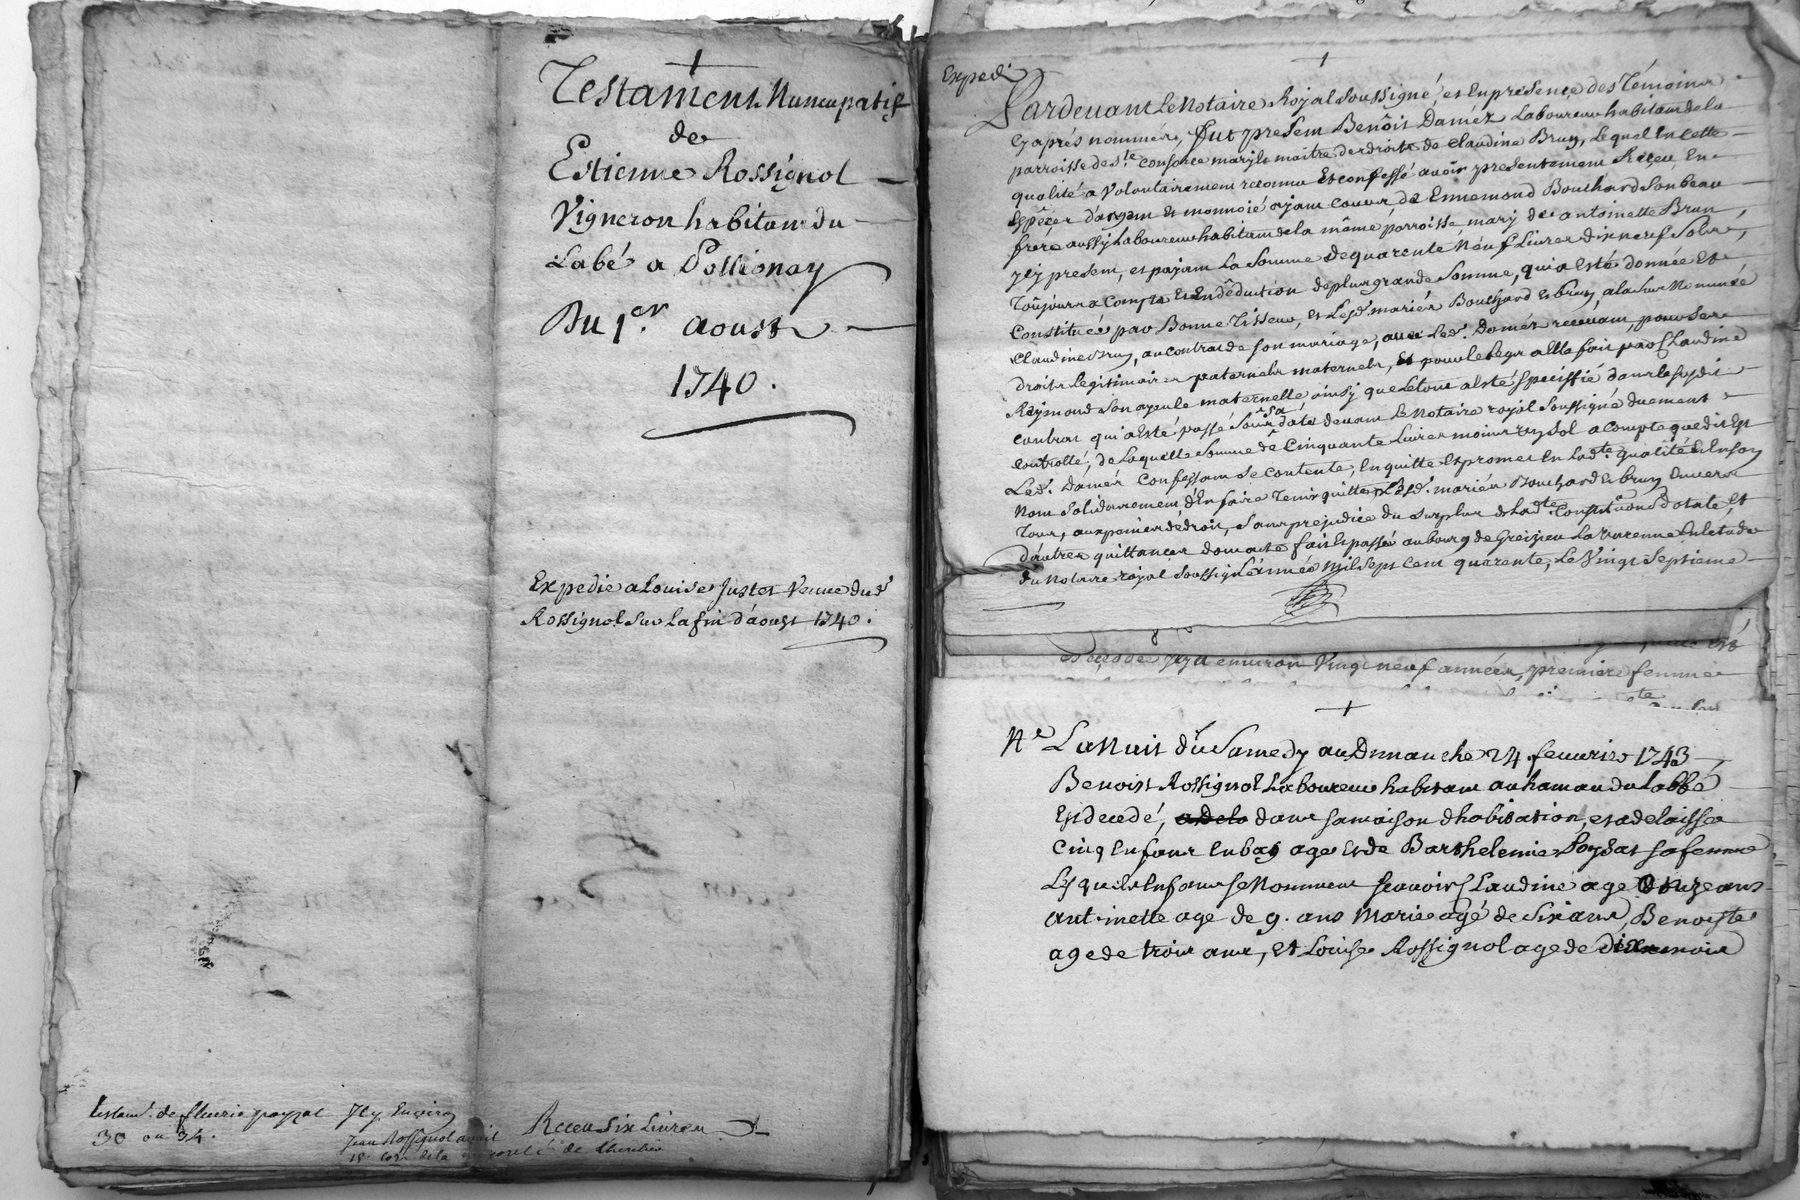 Testament Nuncupatif
de
Estienne Rossignol
Vigneron habitant du
Labé a Pollionay
Du 1er. aoust
1740.
Expedié a Louise Juster Veuve dud.
Rossignol sur la fin d'aoust 1740.
testam.t de fleurie payzat
30 ou 34.
Jean Rossignol avoit
Receu six livres
Expedié
Pardevant Le Notaire Royal soussigné, et en presence des Témoins
cy aprés nommés, fut present Benôit Daméz Laboureur habitant de la
parroisse de Ste. consorce mary et maitre des droits de claudine Brun, Lequel en cette
qualité a volontairement reconnu et confessé avoir presentement Receu en
espêces d'argent et monnoié ayant cours de Ennemond Bouchard son beau
frere aussy Laboureur habitant de la même parroisse, mary de antoinette Brun,
icy present, et payant La somme de quarente Neuf Livres dixneuf Sols,
Toûjours a Compte et en dêduction de plus grande somme, qui a esté donnée et
Constituée par Bonne Tisseur, et Lesd. mariés Bouchard et brun, a la sus Nommée
Claudine Brun, au contrat de son mariage, avec Led. Damés recevant, pour ses
droits legitimaires paternels maternels, et pour le legs a elle fait par Claudine
Raymond son ayeule maternelle ainsy que le tout a esté speciffié dans le susdit
contrat qui a esté passé sous sa date devant Le Notaire royal soussigné duement
controllé; de Laquelle somme de Cinquante Livres moins un sol a compte que dit est
Led. Damés Confessant se contente, en quitte et promet en Ladte. qualité et en son
Nom solidairement d'En faire Tenir quittes Lesd. mariés Bouchard et brun Envers
Tous, aux peines de droit, sans prejudice du surplus de Ladte. Constituõn Dotale, et
d'autres quittances dont acte fait et passé au bourg de Greizieu La Varenne Enletude
du Notaire royal soussigné L'année mil sept cent quarente, Le Vingt septieme
est decedé il y a environ Vingt neuf années, premiere femme
Ne. La Nuit du Samedy au Dimanche 24. fevrier 1743
Benoist Rossignol Laboureur habitant au hameau du Labbé
Est decedé, dans sa maison d'habitation, et a delaissé
Cinq Enfans en bas age et de Barthelemie Poysat sa femme
Lesquels Enfans se Nomment scavoir Claudine age d'onze ans
antoinette age de 9. ans Marie agé de six ans, Benoiste
age de trois ans, et Louise Rossignol age de dix mois